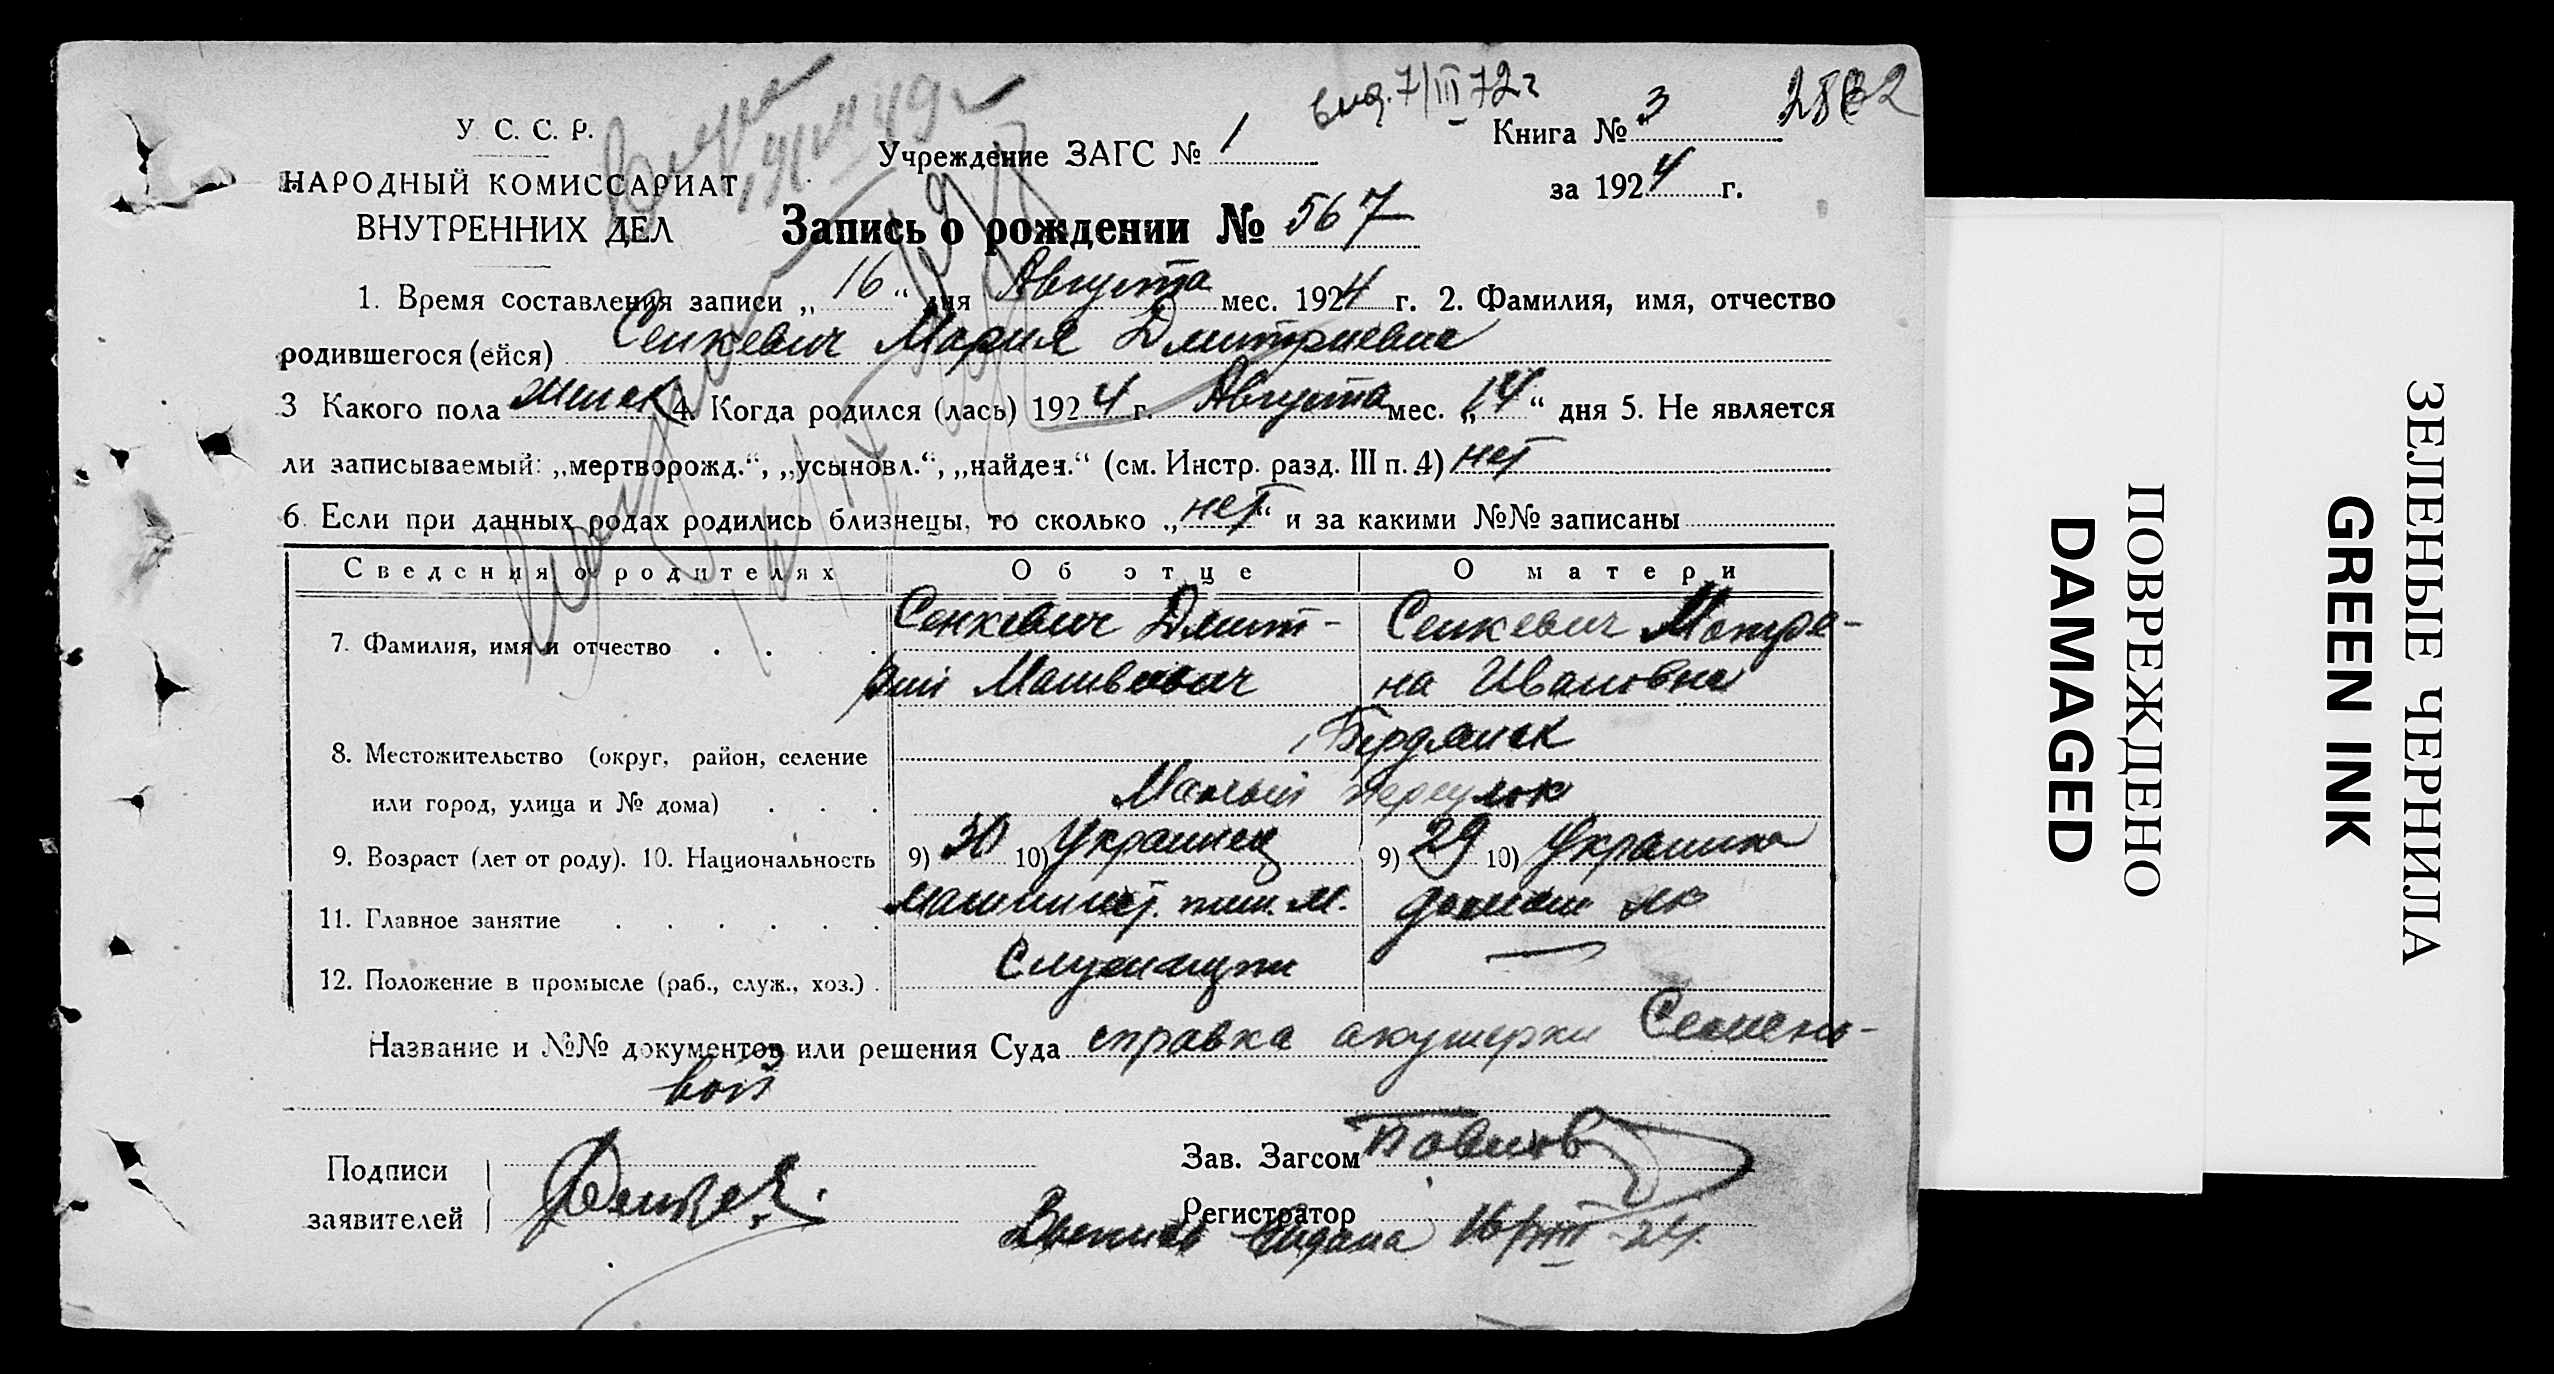 вид. 7/III 72 г
У. С. С. Р.
НАРОДНЫЙ КОМИССАРИАТ
ВНУТРЕННИХ ДЕЛ
Учреждение ЗАГС № 1
Книга № 3
за 1924 г.
Запись о рождении № 567
1. Время составления записи „16“ дня Августа мес. 1924 г. 2. Фамилия, имя, отчество
родившегося (ейся) Сенкевич Мария Дмитриевна
3 Какого пола женск 4. Когда родился (лась) 1924 г. Августа мес. „14“ дня 5. Не является
ли записываемый: „мертворожд.“, „усыновл.“, „найден.“ (см. Инстр. разд. III п. 4) нет
6. Если при данных родах родились близнецы, то сколько „нет“ и за какими №№ записаны
Сведения о родителях Об отце О матери
7. Фамилия, имя и отчество Сенкевич Дмит- Сенкевич Матре-
рий Матвеевич на Ивановна
8. Местожительство (округ, район, селение Бердянск
или город, улица и № дома) переулок
9. Возраст (лет от роду). 10. Национальность 9) 30 10) Украинец 9) 29 10) Украинка
11. Главное занятие машинист. домаш хоз
12. Положение в промысле (раб., служ., хоз.) Служащий —
Название и №№ документов или решения Суда справка акушерки Семено-
вой
Подписи
заявителей
Зав. Загсом
Регистратор
Выпись выдана 16/VIII 24.
ПОВРЕЖДЕНО
DAMAGED
ЗЕЛЕНЫЕ ЧЕРНИЛА
GREEN INK